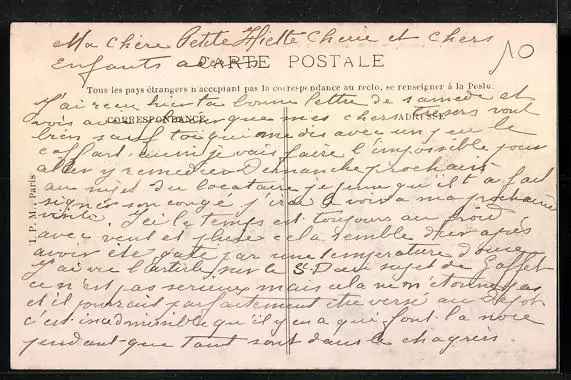 Ma Chère Petite Cherie et Chers
10
Enfants
CARTE POSTALE
Tous les pays étrangers n'acceptant pas la correspondance au recto, se renseigner à la Poste.
J'ai recu hier ta bonne lettre de samedi et
vois que mes chers Tresors vont
CORRESPONDANCE
ADRESSE
bien sauf toi qui me dis avoir un peu le
caffart. je vais faire l'impossible pour
aller y remedier Dimanche prochain
au sujet du locataire je pense qu'il t'a fait
signer son congé j'irai le voir a ma prochaine
visite. Ici le temps est toujours au froid
avec vent et pluie cela semble dur après
avoir été gaté par une température douce
J'ai vu l'article sur le au sujet de
ce n'est pas serieux mais cela ne m'etonne pas
et il pourrait parfaitement être versé au Dépot
c'est inadmissible qu'il y en a qui font la noce
pendant que tant sont dans le chagrin.
I. P. M., Paris